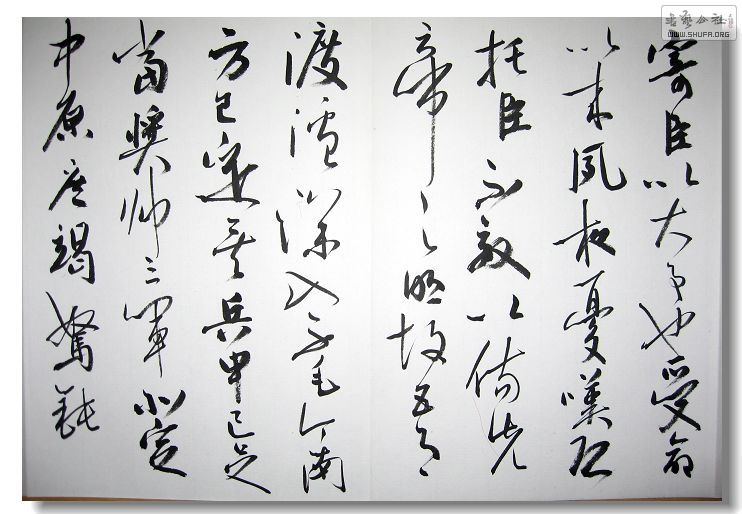 書藝公社
WWW.SHUFA.ORG
寄臣以大事也受命
以来夙夜憂嘆恐
托臣不效以傷先
帝之明故五月
渡瀘深入不毛今南
方已定兵甲已足
當獎帥三軍北定
中原庶竭駑鈍